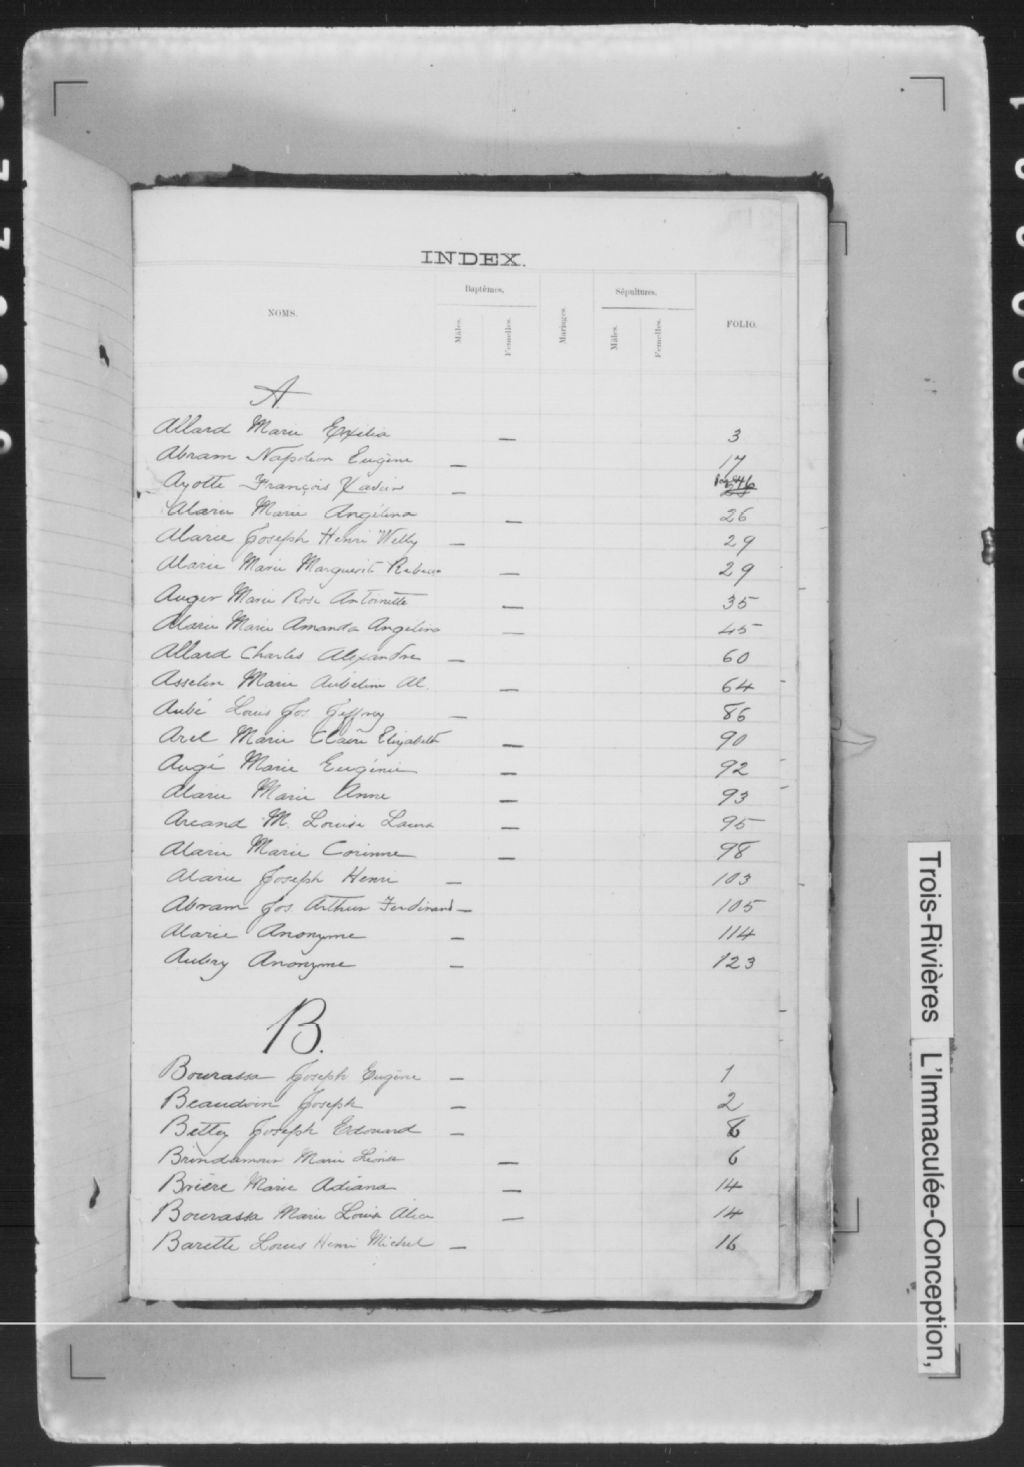 INDEX.
NOMS. Baptêmes. Mariages. Sépultures. FOLIO.
Mâles. Femelles. Mâles. Femelles.
A
Allard Marie Exilia — 3
Abram Napoléon Eugène — 17
Ayotte François Xavier —
Alarie Marie Angélina — 26
Alarie Joseph Henri Willy — 29
Alarie Marie Marguerite Rebecca — 29
Auger Marie Rose Antoinette — 35
Alarie Marie Amanda Angelina — 45
Allard Charles Alexandre — 60
Asselin Marie Aubéline Al. — 64
Aubé Louis Jos Jeffrey — 86
Arel Marie Claire Elizabeth — 90
Augé Marie Eugénie — 92
Alarie Marie Anne — 93
Arcand M. Louise Laura — 95
Alarie Marie Corinne — 98
Alarie Joseph Henri — 103
Abram Jos. Arthur Ferdinand — 105
Alarie Anonyme — 114
Aubry Anonyme — 123
B.
Bourassa Joseph Eugène — 1
Beaudoin Joseph — 2
Bettey Joseph Edouard —
Brindamour Marie Léonie — 6
Brière Marie Adiana — 14
Bourassa Marie Louise Alice — 14
Barette Louis Henri Michel — 16
Trois-Rivières L'Immaculée-Conception,